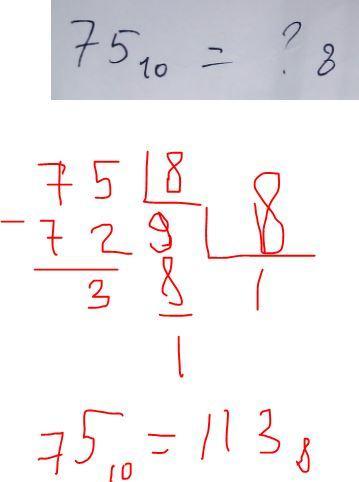 75₁₀ = ? ₈
75 8
- 72 9 8
3 8 1
1
75₁₀ = 113₈